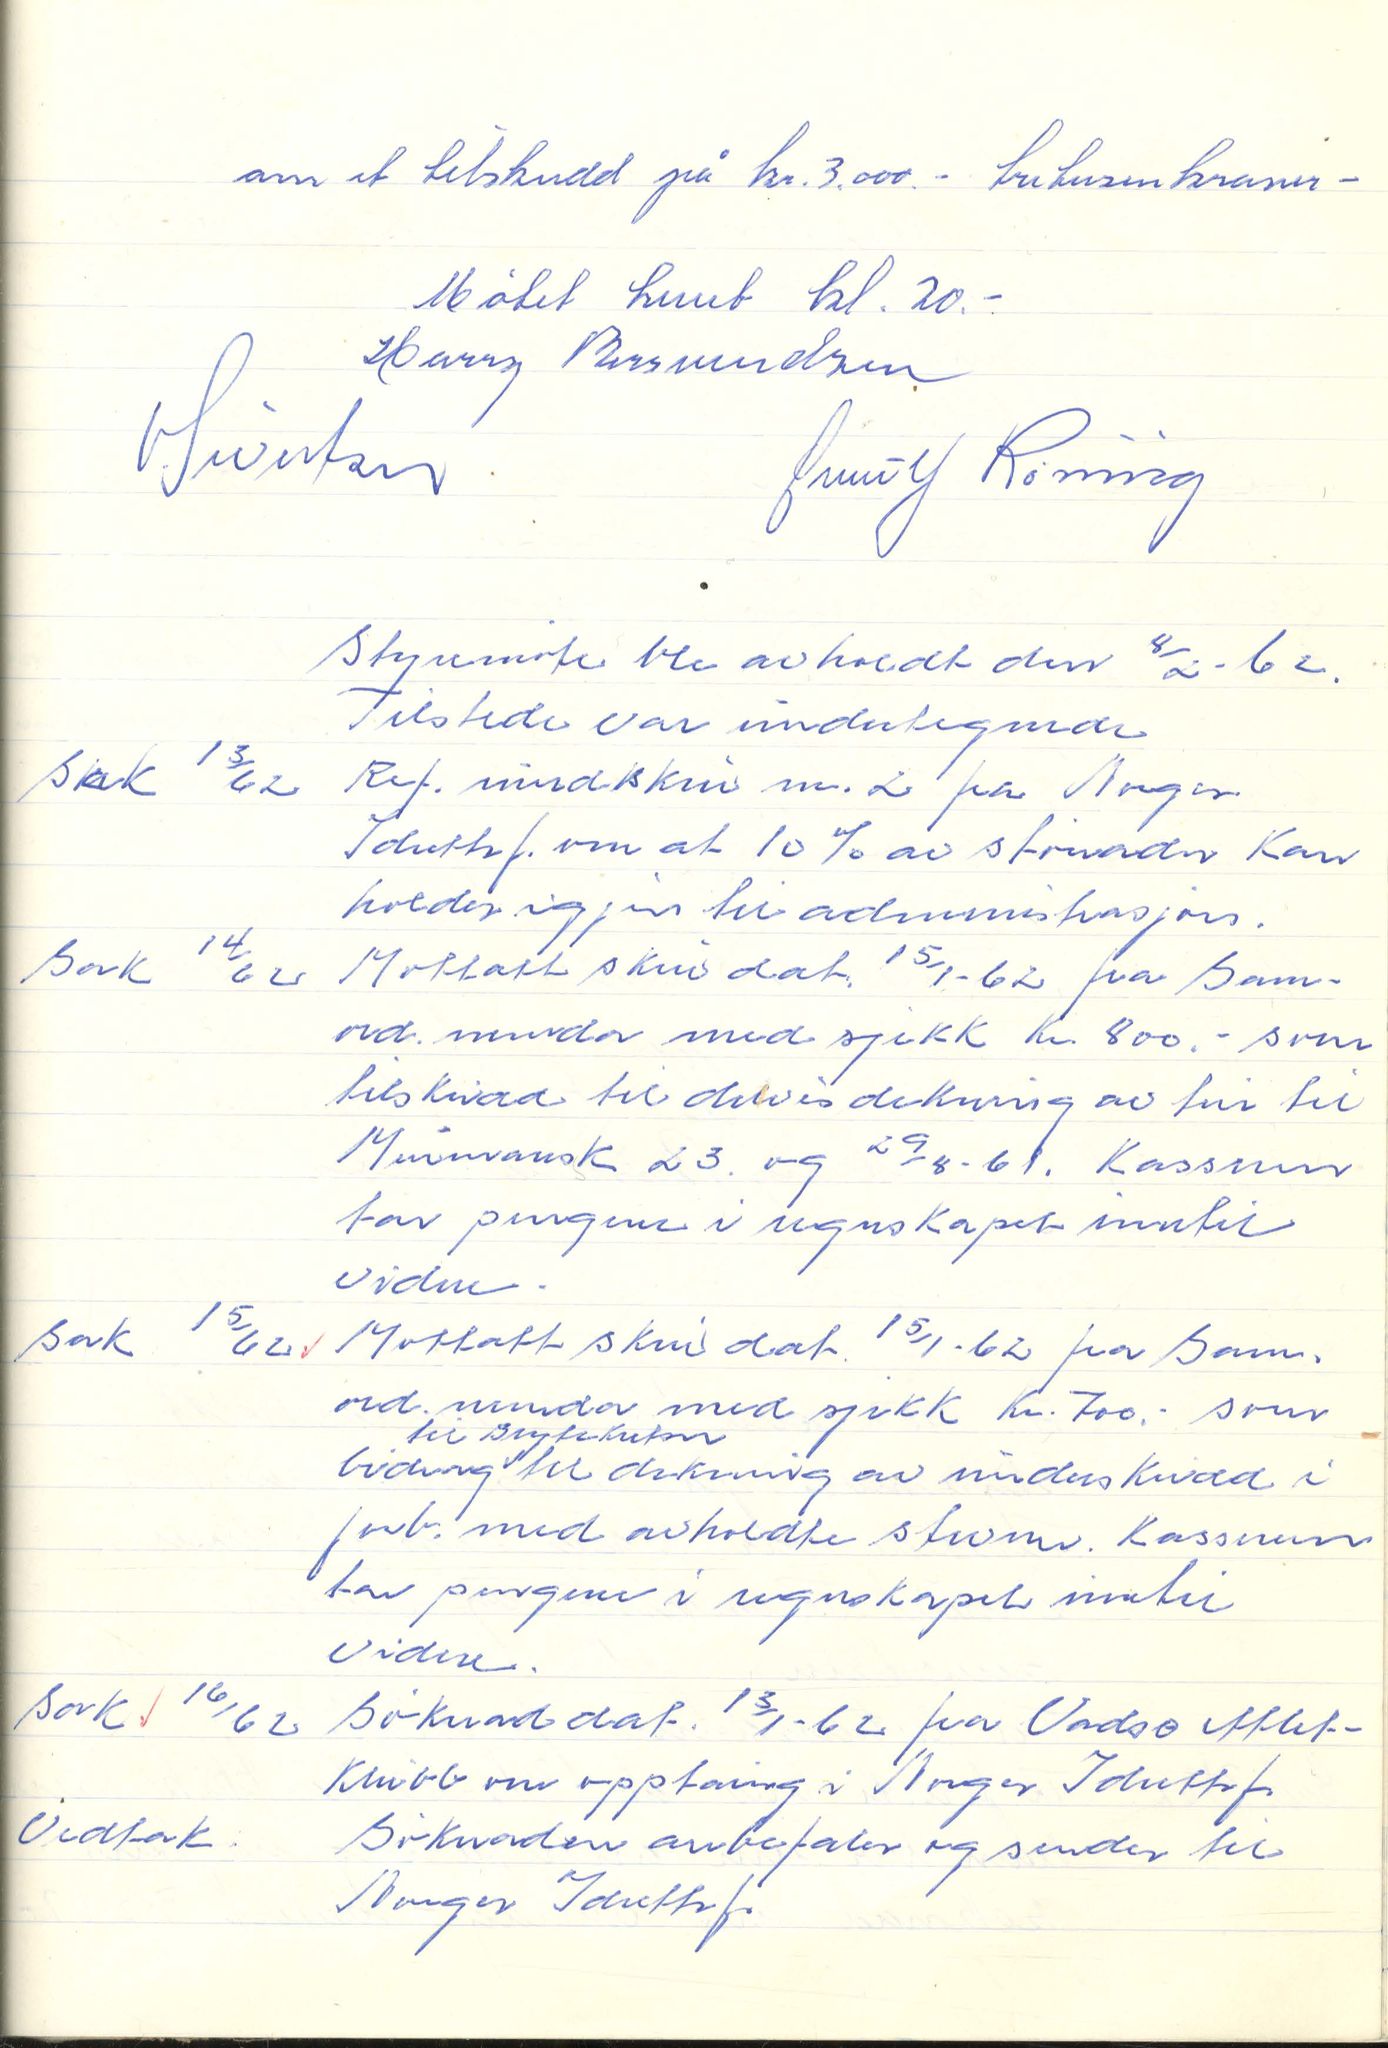 om et tilskudd på kr. 3.000.- tretusenkroner -
Møtet hevet kl. 20.-
Harry
Sivertsen
Røning
Styremøte ble avholdt den 8/2-62.
Tilstede var undertegnede
Sak 13/62 Ref. rundskriv nr. 2 fra Norges
Idrettsf. om at 10 % av stönader kan
holdes igjen til administrasjon.
Sak 14/62 Mottatt skriv dat. 15/1-62 fra Sam-
ord. nemda med sjekk kr. 800.- som
tilskudd til delvis dekning av tur til
Murmansk 23. og 29/8-61. Kasseren
tar pengene i regnskapet inntil
videre.
Sak 15/62 Mottatt skriv dat. 15/1-62 fra Sam-
ord. nemda med sjekk kr. 700.- som
til Brytekretsen
bidrag til dekning av underskudd i
forb. med avholdte stevner. Kasseren
tar pengene i regnskapet inntil
videre.
Sak 16/62 Söknad dat. 13/1-62 fra Vadsø Atlet-
klubb om opptaing i Norges Idrettsf.
Vedtak: Söknaden anbefales og sendes til
Norges Idrettsf.